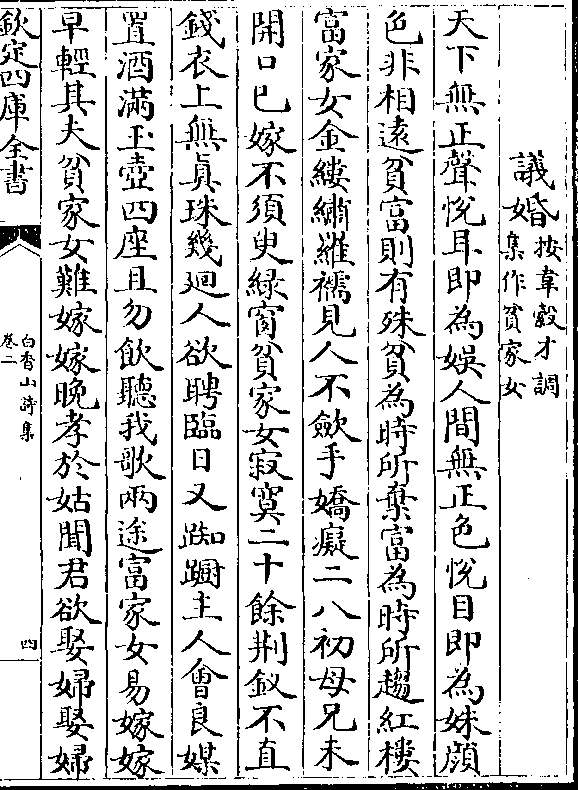 議婚按韋縠才調集作貧家女
天下無正聲悅耳即為娛人間無正色悅目即為姝顔
色非相遠貧富則有殊貧為時所棄富為時所趨紅樓
富家女金縷繡羅襦見人不斂手嬌癡二八初母兄未
開口已嫁不須臾緑窗貧家女寂寞二十餘荆釵不直
錢衣上無眞珠幾廻人欲聘臨日又踟蹰主人會良媒
置酒滿玉壺四座且勿飲聽我歌兩途富家女易嫁嫁
早輕其夫貧家女難嫁嫁晩孝於姑聞君欲娶婦娶婦
欽定四庫全書
白香山詩集
卷二
四